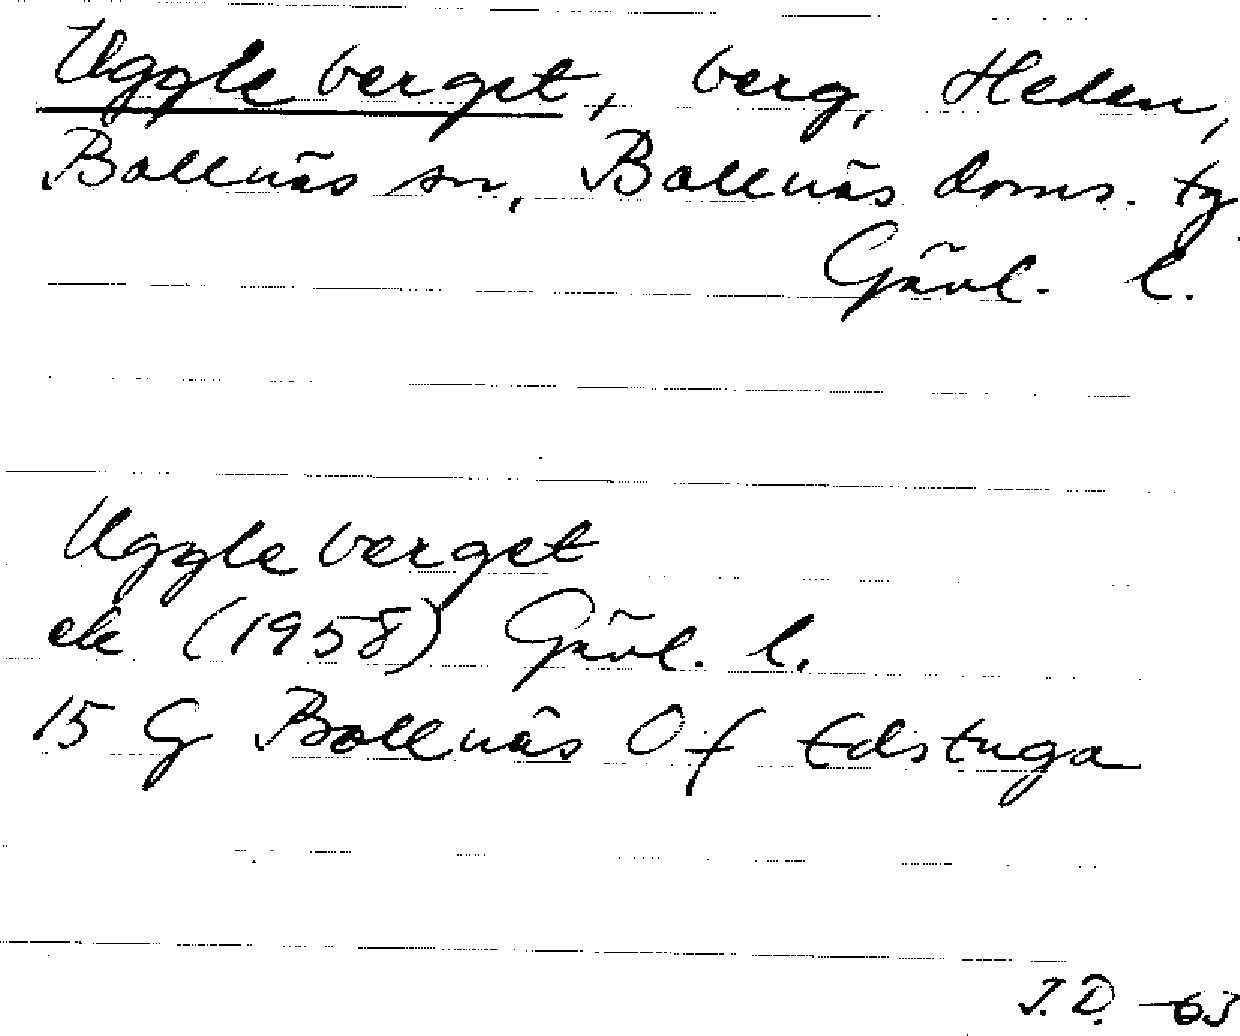 Uggleberget, berg, Heden,
Bollnäs sn, Bollnäs doms. tg
Gävl. l.
Uggleberget
ek (1958) Gävl. l.
15 G Bollnäs Of Edstuga
J.D. -63